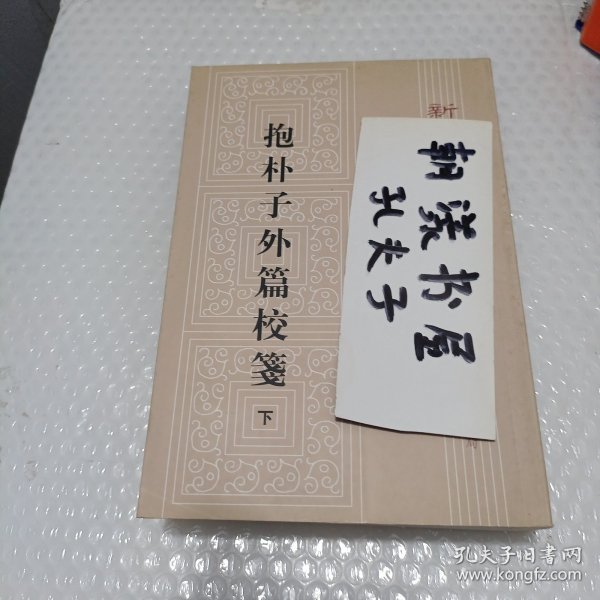 抱朴子外篇校箋
下
新
朝漾书屋
孔夫子
孔夫子旧书网
www.kongfz.com